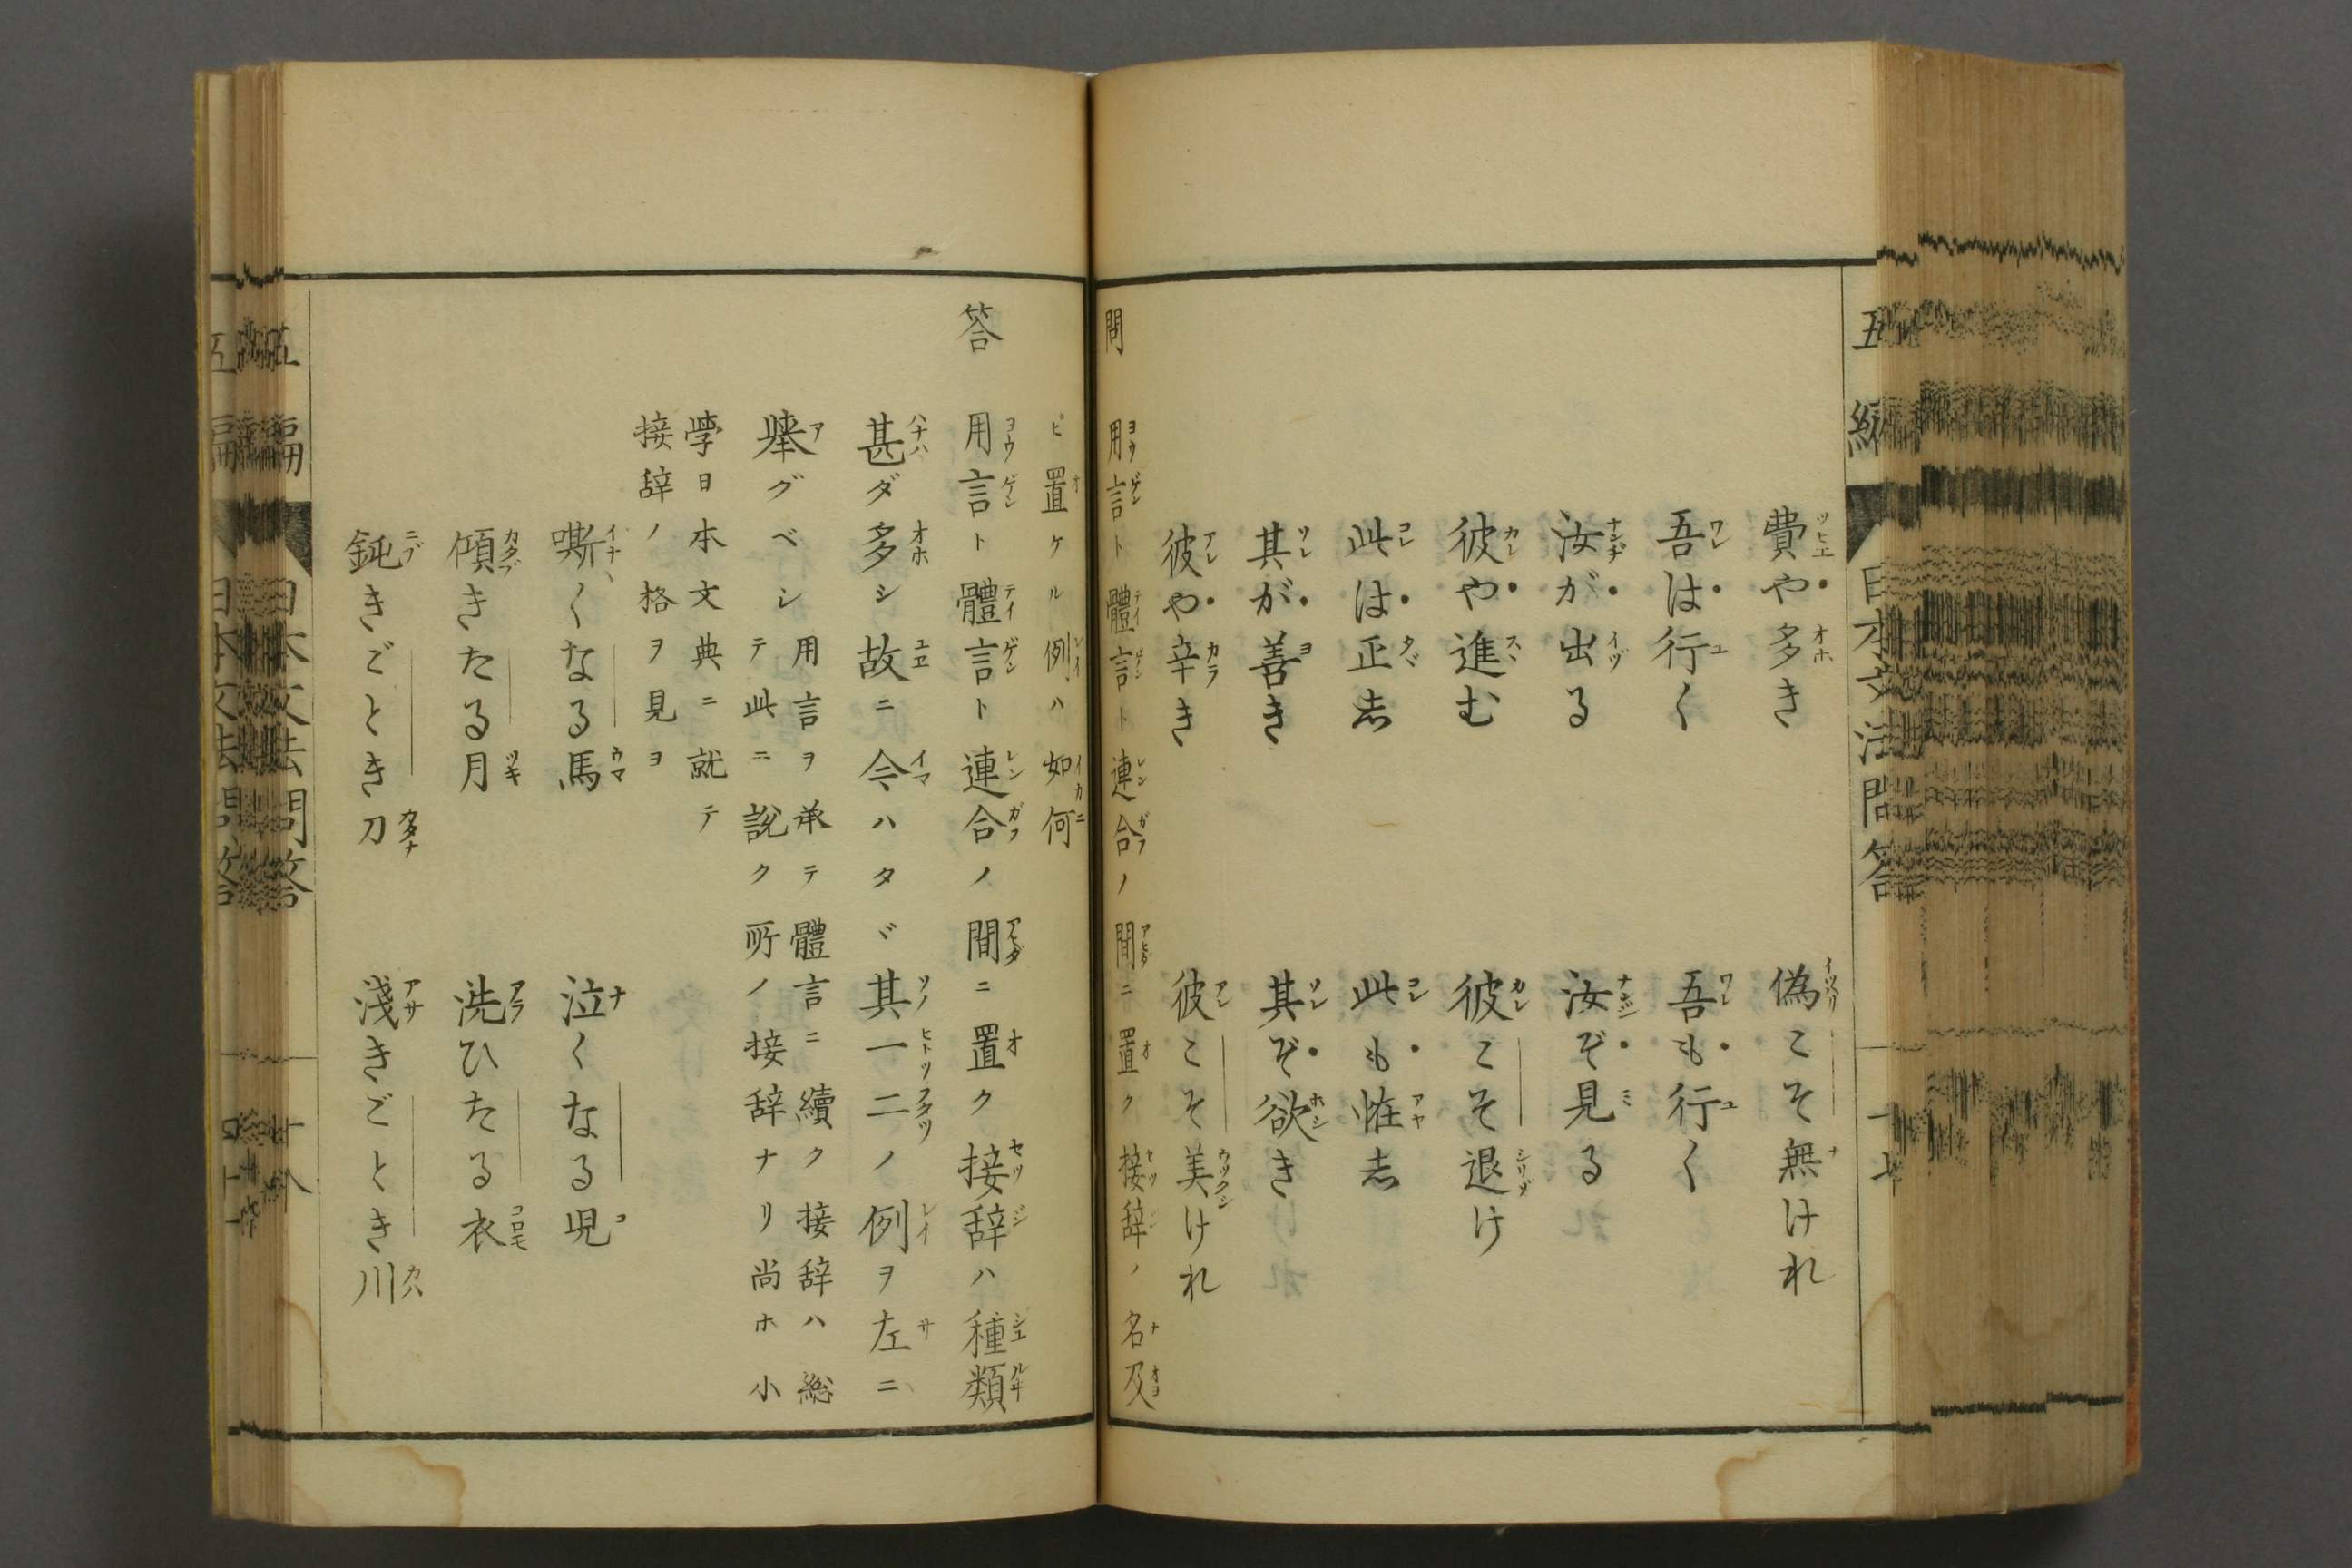 費や多き　偽こそ無けれ
吾は行く　吾も行く
汝が出る　汝ぞ見る
彼や進む　彼こそ退け
此は正志　此も恠志
其が善き　其ぞ欲き
彼や辛き　彼こそ美けれ
問　用言ト體言ト連合ノ間ニ置ク接辞ノ名及
ビ置ケル例ハ如何
答　用言ト體言ト連合ノ間ニ置ク接辞ハ種類
甚ダ多シ故ニ今ハタヾ其一二ノ例ヲ左ニ
擧グベシ
用言ヲ承テ體言ニ續ク接辞ハ総
テ此ニ說ク所ノ接辞ナリ尚ホ小
學日本文典ニ就テ
接辞ノ格ヲ見ヨ
嘶くなる馬　泣くなる児
傾きたる月　洗ひたる衣
鈍きごとき刀　淺きごとき川
日本文法問答